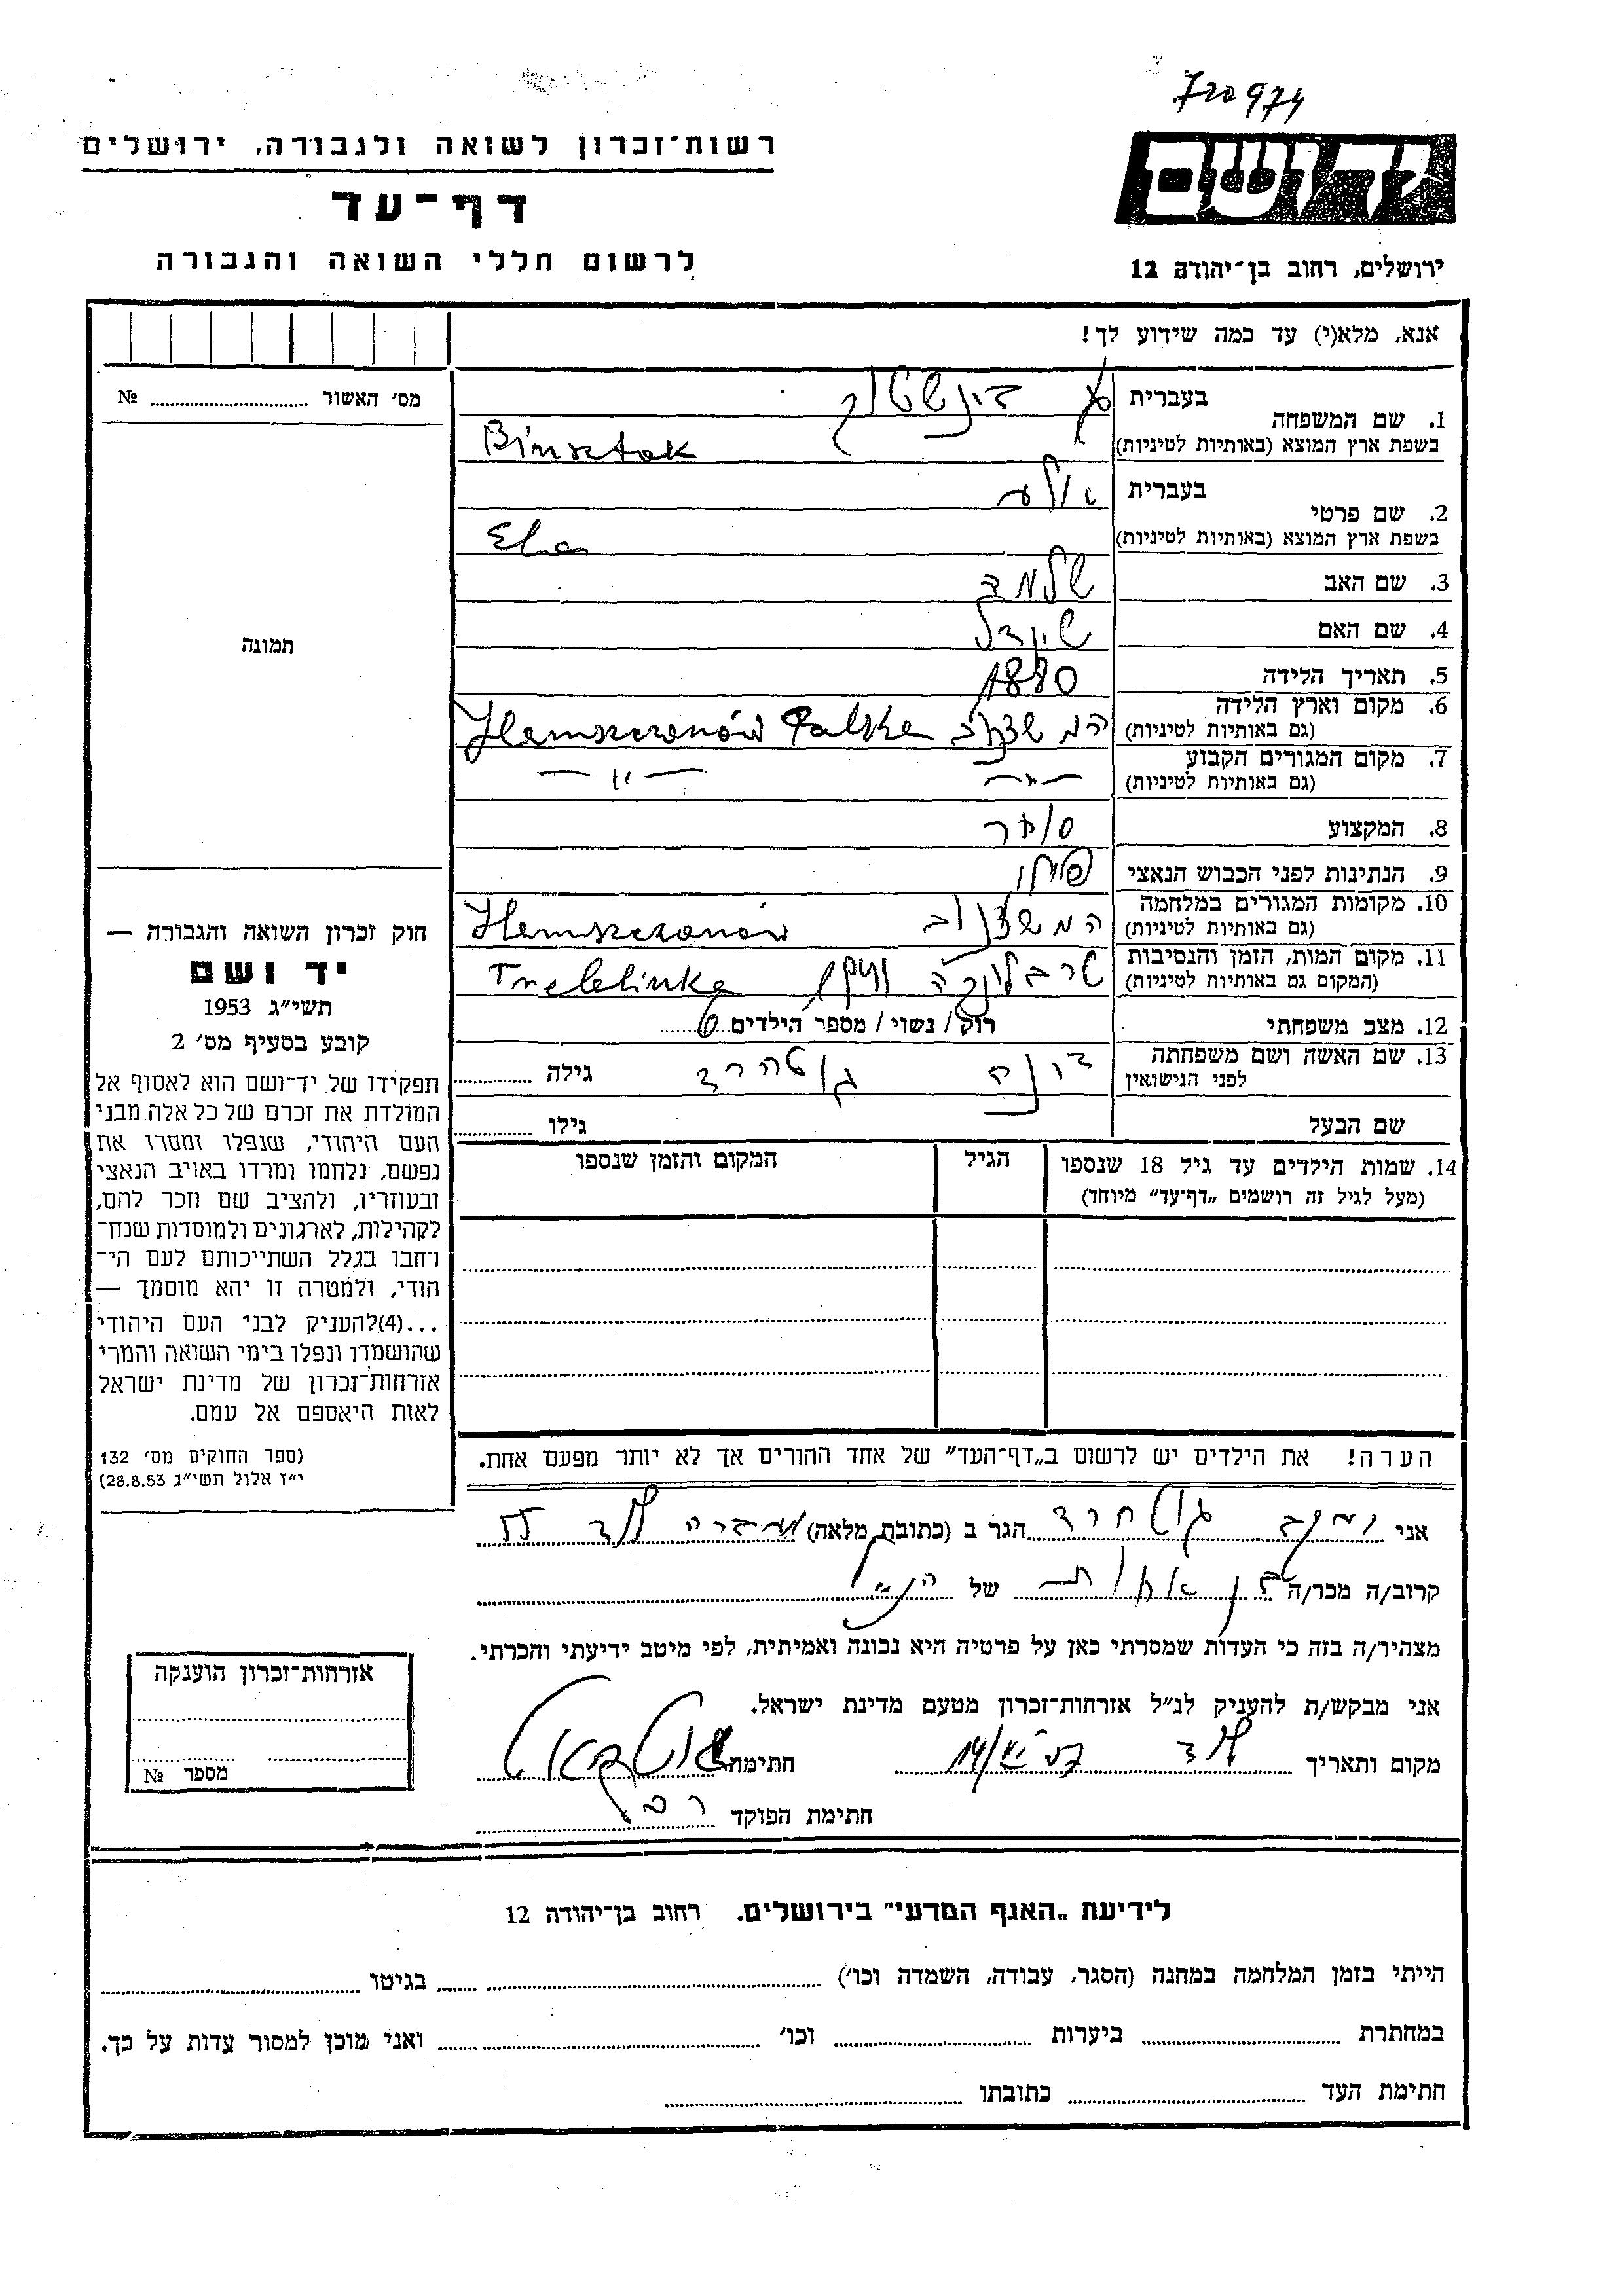 720974
רשות־זכרון לשואה ולגבורה, ירושלים
יד ושם
דף־עד
לרשום חללי השואה והגבורה
ירושלים, רחוב בן־יהודה 12
אנא, מלא(י) עד כמה שידוע לך!
מס' האשור № ....................
1. שם המשפחה בעברית בינשטוק
בשפת ארץ המוצא (באותיות לטיניות) Binsztok
2. שם פרטי בעברית
בשפת ארץ המוצא (באותיות לטיניות)
3. שם האב שלמה
4. שם האם שיינדל
תמונה
5. תאריך הלידה 1880
6. מקום וארץ הלידה
(גם באותיות לטיניות) Polska
7. מקום המגורים הקבוע
(גם באותיות לטיניות) — " — — " —
8. המקצוע סוחר
9. הנתינות לפני הכבוש הנאצי פולין
10. מקומות המגורים במלחמה
(גם באותיות לטיניות)
11. מקום המות, הזמן והנסיבות
(המקום גם באותיות לטיניות) טרבלינקה Treblinka
12. מצב משפחתי רווק / נשוי / מספר הילדים 6
13. שם האשה ושם משפחתה
לפני הנישואין גוטהרד גילה ............
שם הבעל גילו ............
14. שמות הילדים עד גיל 18 שנספו הגיל המקום והזמן שנספו
(מעל לגיל זה רושמים „דף־עד" מיוחד)
חוק זכרון השואה והגבורה —
יד ושם
תשי"ג 1953
קובע בסעיף מס' 2
תפקידו של יד־ושם הוא לאסוף אל
המולדת את זכרם של כל אלה מבני
העם היהודי, שנפלו ומסרו את
נפשם, נלחמו ומרדו באויב הנאצי
ובעוזריו, ולהציב שם וזכר להם,
לקהילות, לארגונים ולמוסדות שנח־
רחבו בגלל השתייכותם לעם הי־
הודי, ולמטרה זו יהא מוסמך —
...(4)להעניק לבני העם היהודי
שהושמדו ונפלו בימי השואה והמרי
אזרחות־זכרון של מדינת ישראל
לאות היאספם אל עמם.
(ספר החוקים מס' 132
י"ז אלול תשי"ג 28.8.53)
הערה! את הילדים יש לרשום ב„דף־העד" של אחד ההורים אך לא יותר מפעם אחת.
אני גוטהרד הגר ב (כתובת מלאה) לוד
קרוב/ה מכר/ה בן אחות של הנ"ל
מצהיר/ה בזה כי העדות שמסרתי כאן על פרטיה היא נכונה ואמיתית, לפי מיטב ידיעתי והכרתי.
אני מבקש/ת להעניק לנ"ל אזרחות־זכרון מטעם מדינת ישראל.
מקום ותאריך לוד חתימה
חתימת הפוקד
אזרחות־זכרון הוענקה
מספר №
לידיעת „האגף המדעי" בירושלים. רחוב בן־יהודה 12
הייתי בזמן המלחמה במחנה (הסגר, עבודה, השמדה וכו') .................... בגיטו ....................
במחתרת .................... ביערות .................... וכו' .................... ואני מוכן למסור עדות על כך.
חתימת העד .................... כתובתו ....................